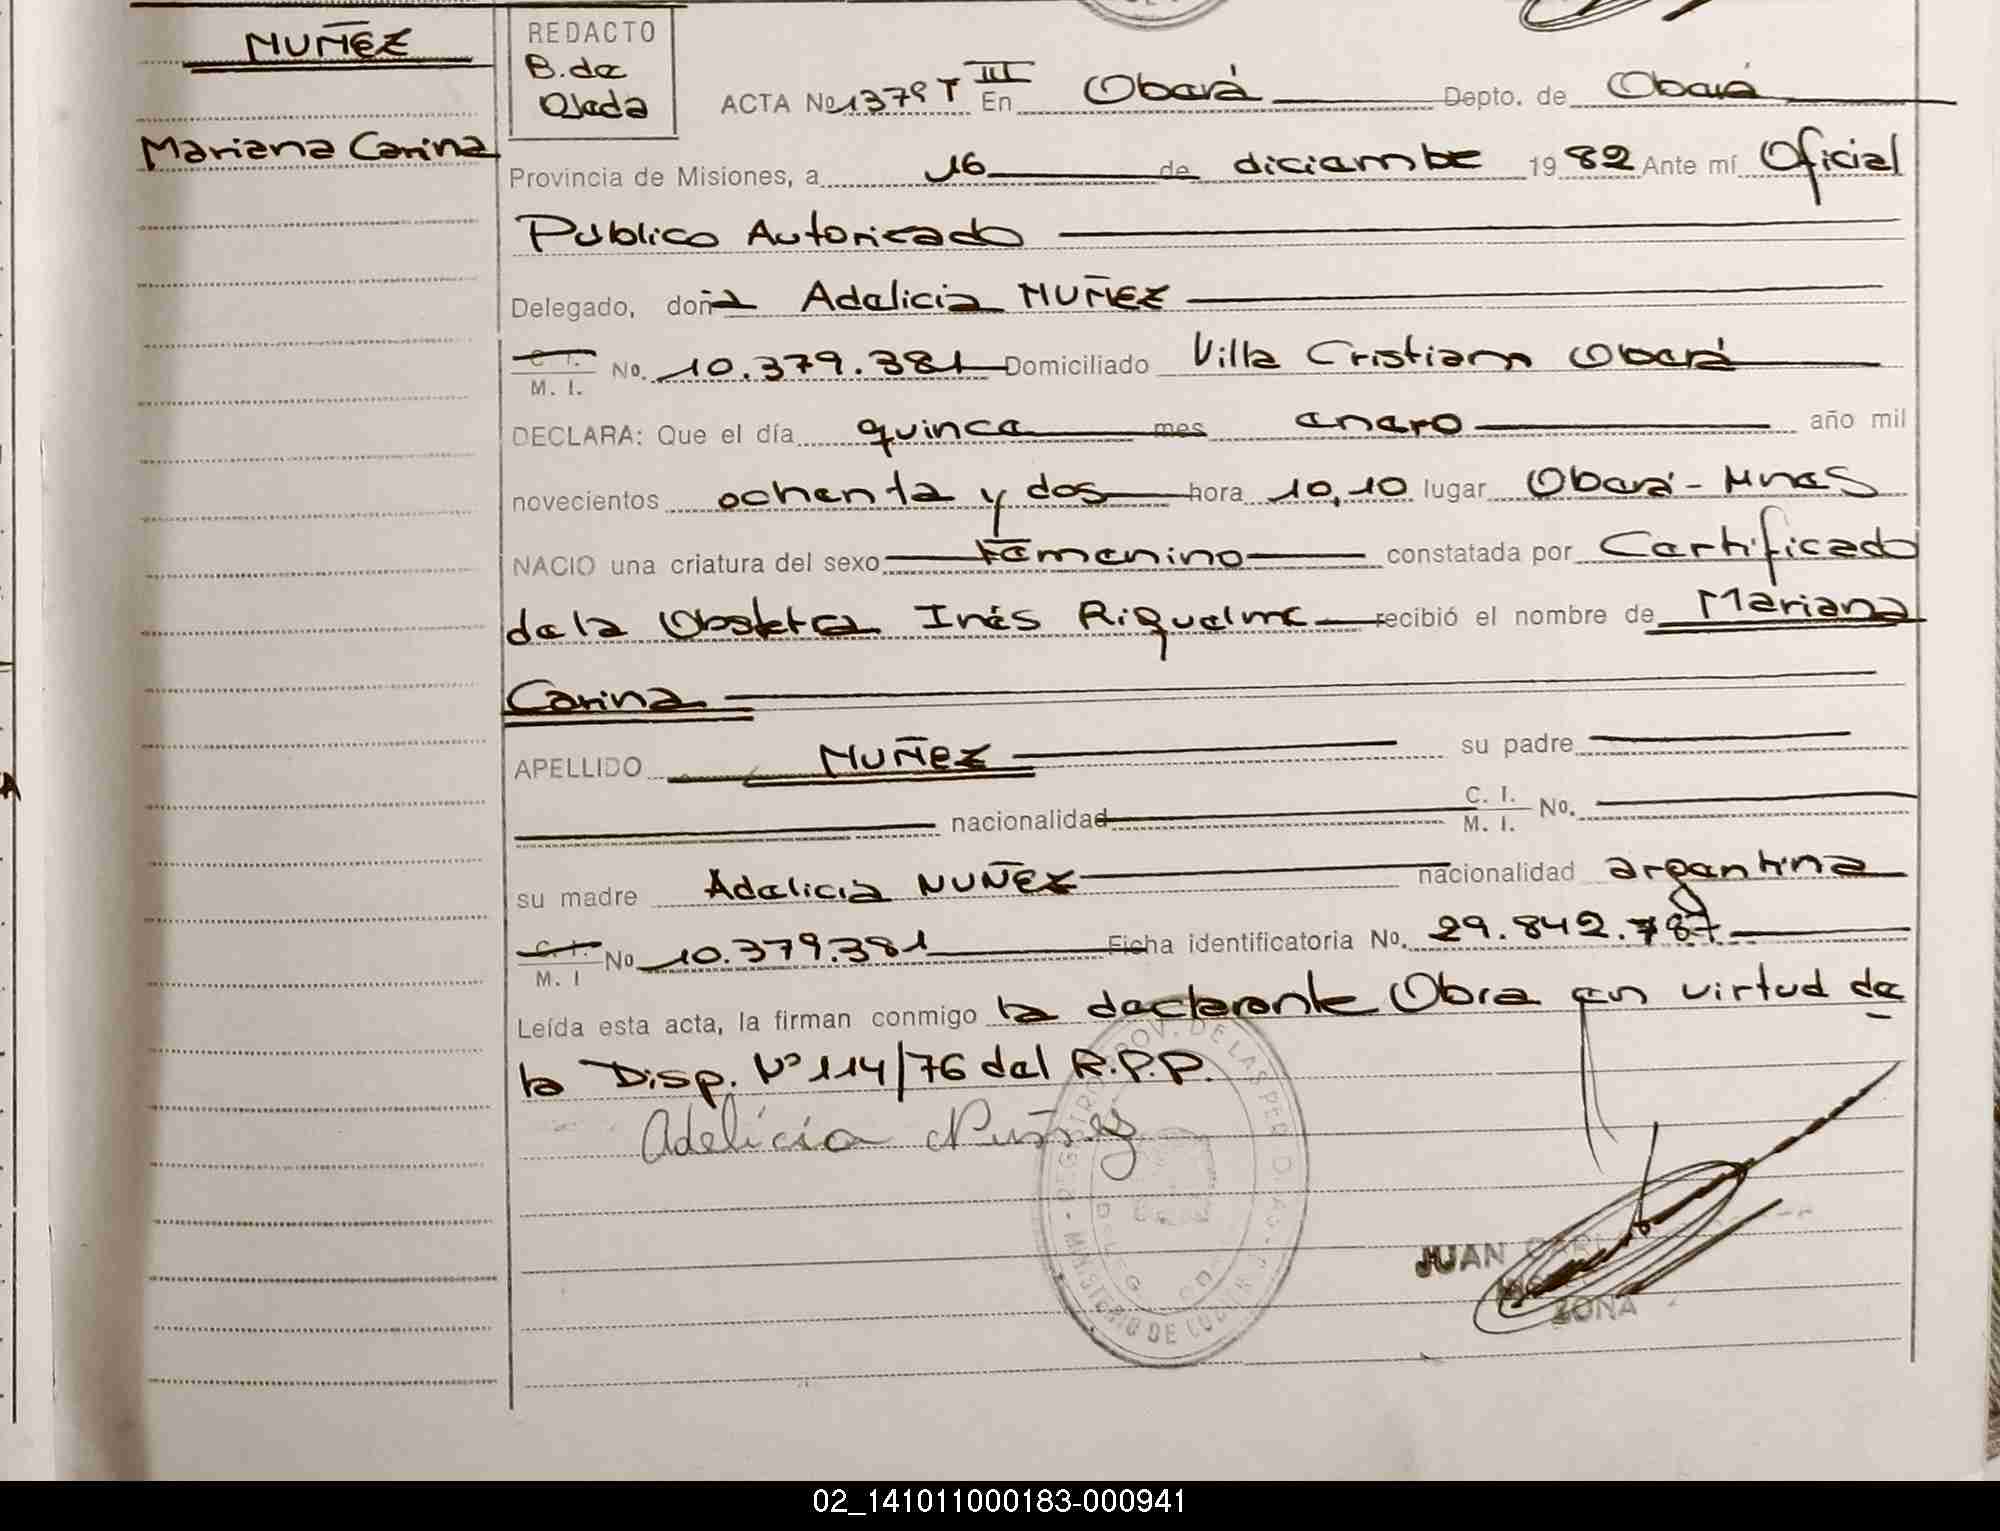 NUÑEZ
Mariana Carina
REDACTO
B. de
Ojeda
ACTA Nº 1379 T III En Oberá Depto. de Oberá
Provincia de Misiones, a 16 de diciembre 1982 Ante mí Oficial
Publico Autorizado
Delegado, doña Adelicia NUÑEZ
C I. No. 10.379.381 Domiciliado Villa Cristiam Oberá
M. I.
DECLARA: Que el día quince mes enero año mil
novecientos ochenta y dos hora 10,10 lugar Oberá - Mnes
NACIO una criatura del sexo femenino constatada por Certificado
de la Obstetra Inés Riquelme recibió el nombre de Mariana
Carina
APELLIDO NUÑEZ su padre
nacionalidad C. I. No.
M. I.
su madre Adelicia NUÑEZ nacionalidad argentina
C. I. No 10.379.381 Ficha identificatoria No. 29.842.787
M. I
Leída esta acta, la firman conmigo la declarante Obra en virtud de
la Disp. Nº 114/76 del R.P.P.
Adelicia Nuñez
PROV. DE LAS PER
MINISTERIO DE
JUAN
ZONA
02_141011000183-000941